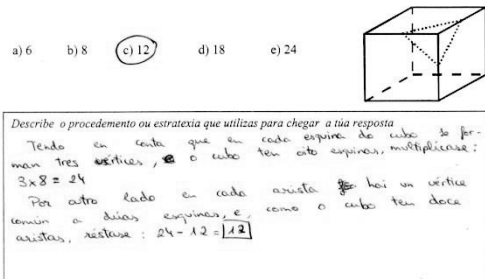 a) 6 b) 8 c) 12 d) 18 e) 24
Describe o procedemento ou estratexia que utilizas para chegar a túa resposta
Tendo en conta que en cada esquina do cubo se for-
man tres vértices, e o cubo ten oito esquinas, multiplícase:
3x8 = 24
Por outro lado en cada arista hai un vértice
común a dúas esquinas, e, como o cubo ten doce
aristas, réstase: 24 - 12 = 12